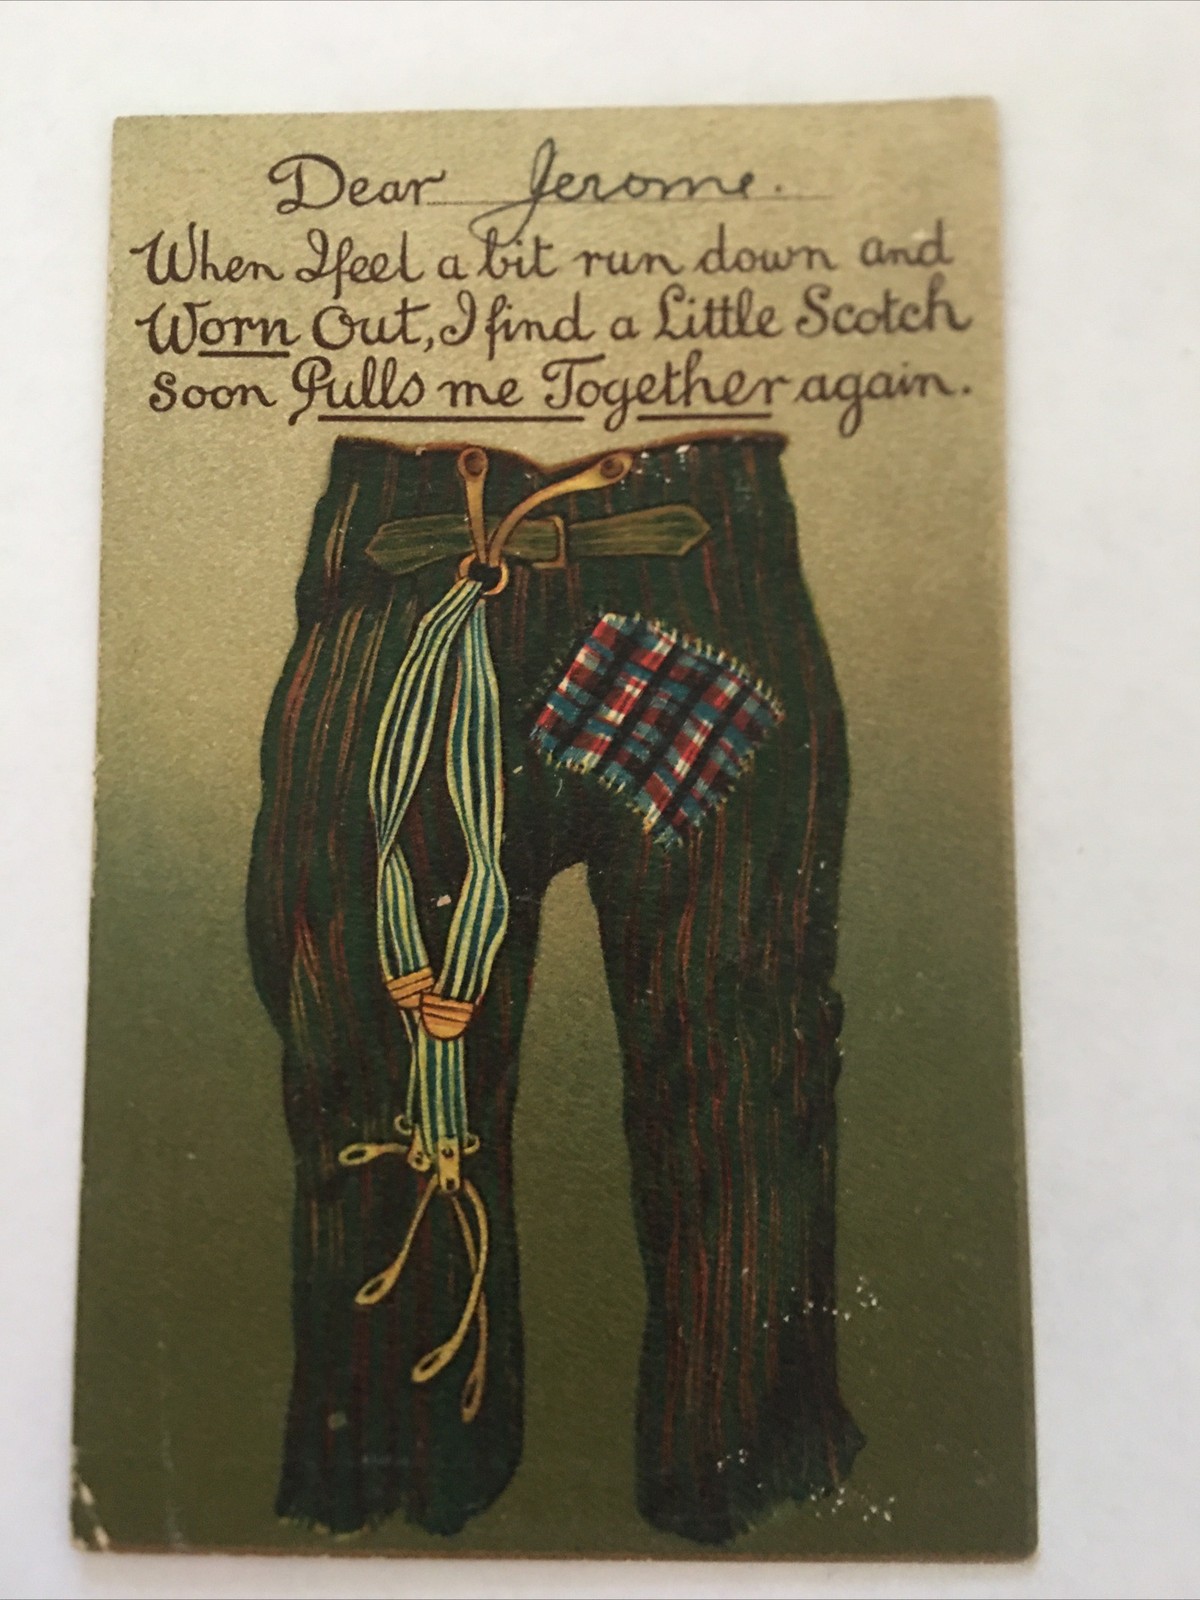 Dear Jerome.
When I feel a bit run down and
Worn Out, I find a Little Scotch
soon Pulls me Together again.